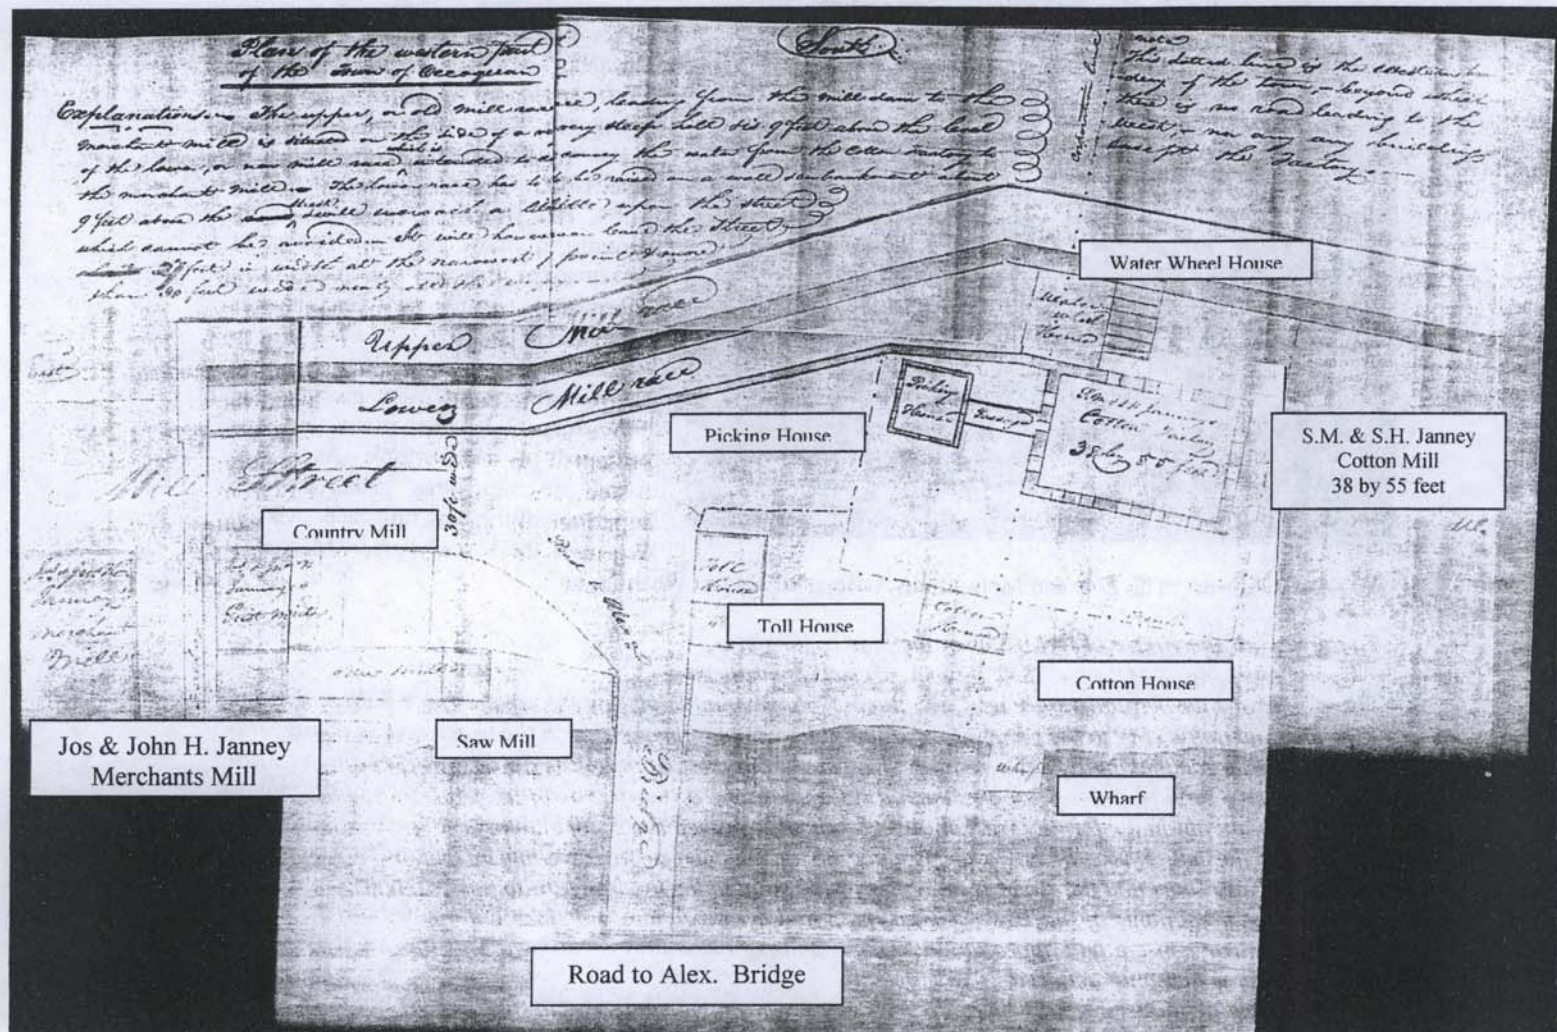 Plan of the western part
of the Town of Occoquan
South
Explanations The upper, or old mill race, leading from the mill dam to the
merchant mill is situated on the side of a very steep hill 9 feet above the level
of the lower, or new mill race which is intended to convey the water from the Cotton Factory to
the merchant mill The lower race has to be raised on a wall embankment about
9 feet above the Street & will encroach a little upon the street
which cannot be avoided It will however leave the Street
feet in width at the narrowest point & more
than 30 feet wide nearly all the
note
This dotted line is the western
of the town, beyond which
there is no road leading to the
west, nor any buildings
except the factory
corporation line
Water Wheel House
Water
Wheel
House
East
Upper Mill race
Lower Mill race
Picking
House
Passage
Cotton Factory
38 by 55 feet
Picking House
S.M. & S.H. Janney
Cotton Mill
38 by 55 feet
Mill Street
30 ft wide
Country Mill
Road
Toll
House
Joseph
Janney
merchant
Mill
Janney
Grist Mill
Toll House
Cotton
House
Cotton House
Saw Mill
Saw Mill
Jos & John H. Janney
Merchants Mill
Bridge
Wharf
Wharf
Road to Alex. Bridge